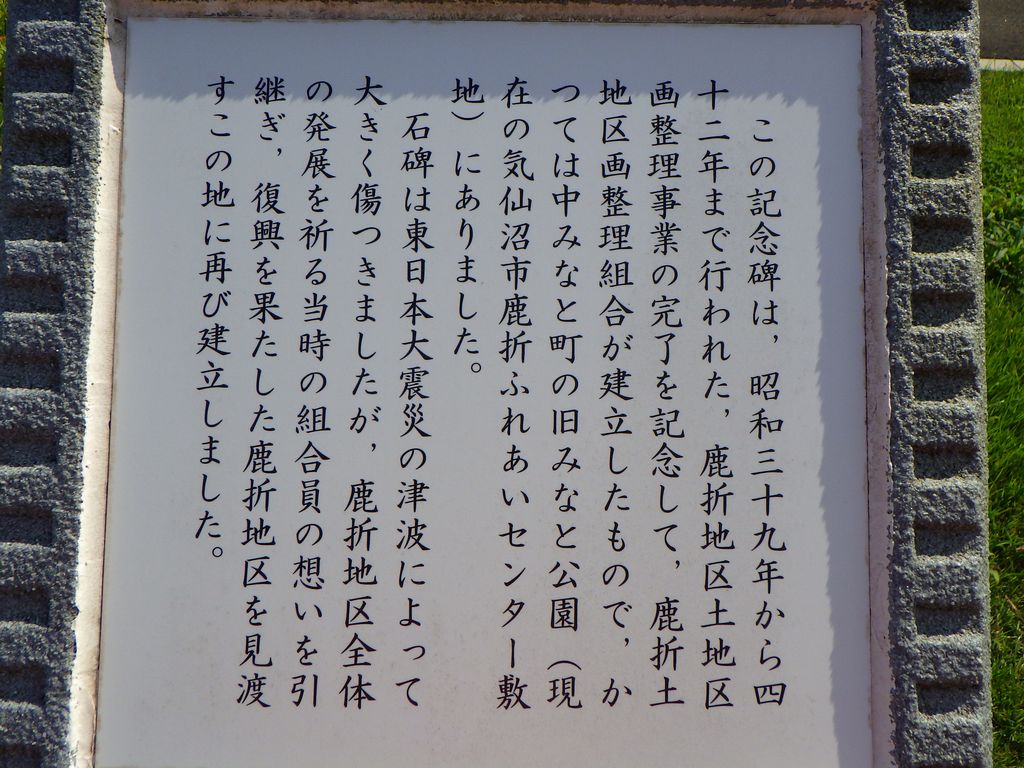 この記念碑は，昭和三十九年から四
十二年まで行われた，鹿折地区土地区
画整理事業の完了を記念して，鹿折土
地区画整理組合が建立したもので，か
つては中みなと町の旧みなと公園（現
在の気仙沼市鹿折ふれあいセンター敷
地）にありました。
石碑は東日本大震災の津波によって
大きく傷つきましたが，鹿折地区全体
の発展を祈る当時の組合員の想いを引
継ぎ，復興を果たした鹿折地区を見渡
すこの地に再び建立しました。